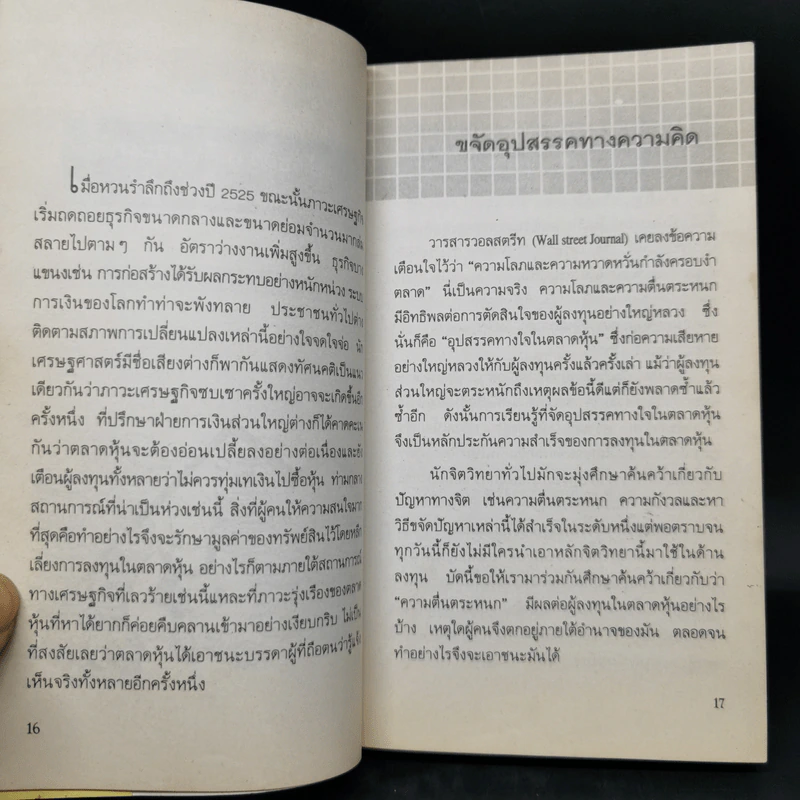 เมื่อหวนรำลึกถึงช่วงปี 2525 ขณะนั้นภาวะเศรษฐกิจ
เริ่มถดถอยธุรกิจขนาดกลางและขนาดย่อมจำนวนมาก
สลายไปตามๆ กัน อัตราว่างงานเพิ่มสูงขึ้น ธุรกิจบาง
แขนงเช่น การก่อสร้างได้รับผลกระทบอย่างหนักหน่วง ระบบ
การเงินของโลกทำท่าจะพังทลาย ประชาชนทั่วไปต่าง
ติดตามสภาพการเปลี่ยนแปลงเหล่านี้อย่างใจดใจจ่อ นัก
เศรษฐศาสตร์มีชื่อเสียงต่างก็พากันแสดงทัศนคติเป็นแนว
เดียวกันว่าภาวะเศรษฐกิจซบเซาครั้งใหญ่อาจจะเกิดขึ้นอีก
ครั้งหนึ่ง ที่ปรึกษาฝ่ายการเงินส่วนใหญ่ต่างก็ได้คาดคะเน
กันว่าตลาดหุ้นจะต้องอ่อนเปลี้ยลงอย่างต่อเนื่องและยัง
เตือนผู้ลงทุนทั้งหลายว่าไม่ควรทุ่มเทเงินไปซื้อหุ้น ท่ามกลาง
สถานการณ์ที่น่าเป็นห่วงเช่นนี้ สิ่งที่ผู้คนให้ความสนใจมาก
ที่สุดคือทำอย่างไรจึงจะรักษามูลค่าของทรัพย์สินไว้โดยหลีก
เลี่ยงการลงทุนในตลาดหุ้น อย่างไรก็ตามภายใต้สถานการณ์
ทางเศรษฐกิจที่เลวร้ายเช่นนี้แหละที่ภาวะรุ่งเรืองของตลาด
หุ้นที่หาได้ยากก็ค่อยคืบคลานเข้ามาอย่างเงียบกริบ ไม่เป็น
ที่สงสัยเลยว่าตลาดหุ้นได้เอาชนะบรรดาผู้ที่ถือตนว่ารู้แจ้ง
เห็นจริงทั้งหลายอีกครั้งหนึ่ง
16
ขจัดอุปสรรคทางความคิด
วารสารวอลสตรีท (Wall street Journal) เคยลงข้อความ
เตือนใจไว้ว่า “ความโลภและความหวาดหวั่นกำลังครอบงำ
ตลาด” นี่เป็นความจริง ความโลภและความตื่นตระหนก
มีอิทธิพลต่อการตัดสินใจของผู้ลงทุนอย่างใหญ่หลวง ซึ่ง
นั่นก็คือ “อุปสรรคทางใจในตลาดหุ้น” ซึ่งก่อความเสียหาย
อย่างใหญ่หลวงให้กับผู้ลงทุนครั้งแล้วครั้งเล่า แม้ว่าผู้ลงทุน
ส่วนใหญ่จะตระหนักถึงเหตุผลข้อนี้ดีแต่ก็ยังพลาดซ้ำแล้ว
ซ้ำอีก ดังนั้นการเรียนรู้ที่จัดอุปสรรคทางใจในตลาดหุ้น
จึงเป็นหลักประกันความสำเร็จของการลงทุนในตลาดหุ้น
นักจิตวิทยาทั่วไปมักจะมุ่งศึกษาค้นคว้าเกี่ยวกับ
ปัญหาทางจิต เช่นความตื่นตระหนก ความกังวลและหา
วิธีขจัดปัญหาเหล่านี้ได้สำเร็จในระดับหนึ่งแต่พอตราบจน
ทุกวันนี้ก็ยังไม่มีใครนำเอาหลักจิตวิทยานี้มาใช้ในด้าน
ลงทุน บัดนี้ขอให้เรามาร่วมกันศึกษาค้นคว้าเกี่ยวกับว่า
“ความตื่นตระหนก” มีผลต่อผู้ลงทุนในตลาดหุ้นอย่างไร
บ้าง เหตุใดผู้คนจึงตกอยู่ภายใต้อำนาจของมัน ตลอดจน
ทำอย่างไรจึงจะเอาชนะมันได้
17